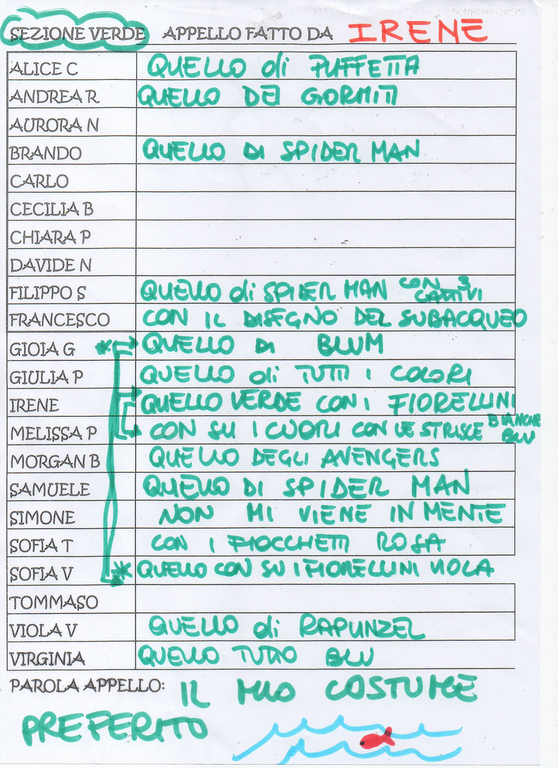 SEZIONE VERDE APPELLO FATTO DA IRENE
ALICE C QUELLO di PUFFETTA
ANDREA R QUELLO DEI GORMITI
AURORA N
BRANDO QUELLO DI SPIDER MAN
CARLO
CECILIA B
CHIARA P
DAVIDE N
FILIPPO S QUELLO di SPIDER MAN CON 3 CATTIVI
FRANCESCO CON IL DISEGNO DEL SUBACQUEO
GIOIA G * QUELLO DI BLUM
GIULIA P QUELLO di TUTTI I COLORI
IRENE QUELLO VERDE CON I FIORELLINI
MELISSA P CON SU I CUORI CON LE STRISCE BIANCHE BLU
MORGAN B QUELLO DEGLI AVENGERS
SAMUELE QUELLO DI SPIDER MAN
SIMONE NON MI VIENE IN MENTE
SOFIA T CON I FIOCCHETTI ROSA
SOFIA V * QUELLO CON SU I FIORELLINI VIOLA
TOMMASO
VIOLA V QUELLO di RAPUNZEL
VIRGINIA QUELLO TUTTO BLU
PAROLA APPELLO: IL MIO COSTUME
PREFERITO